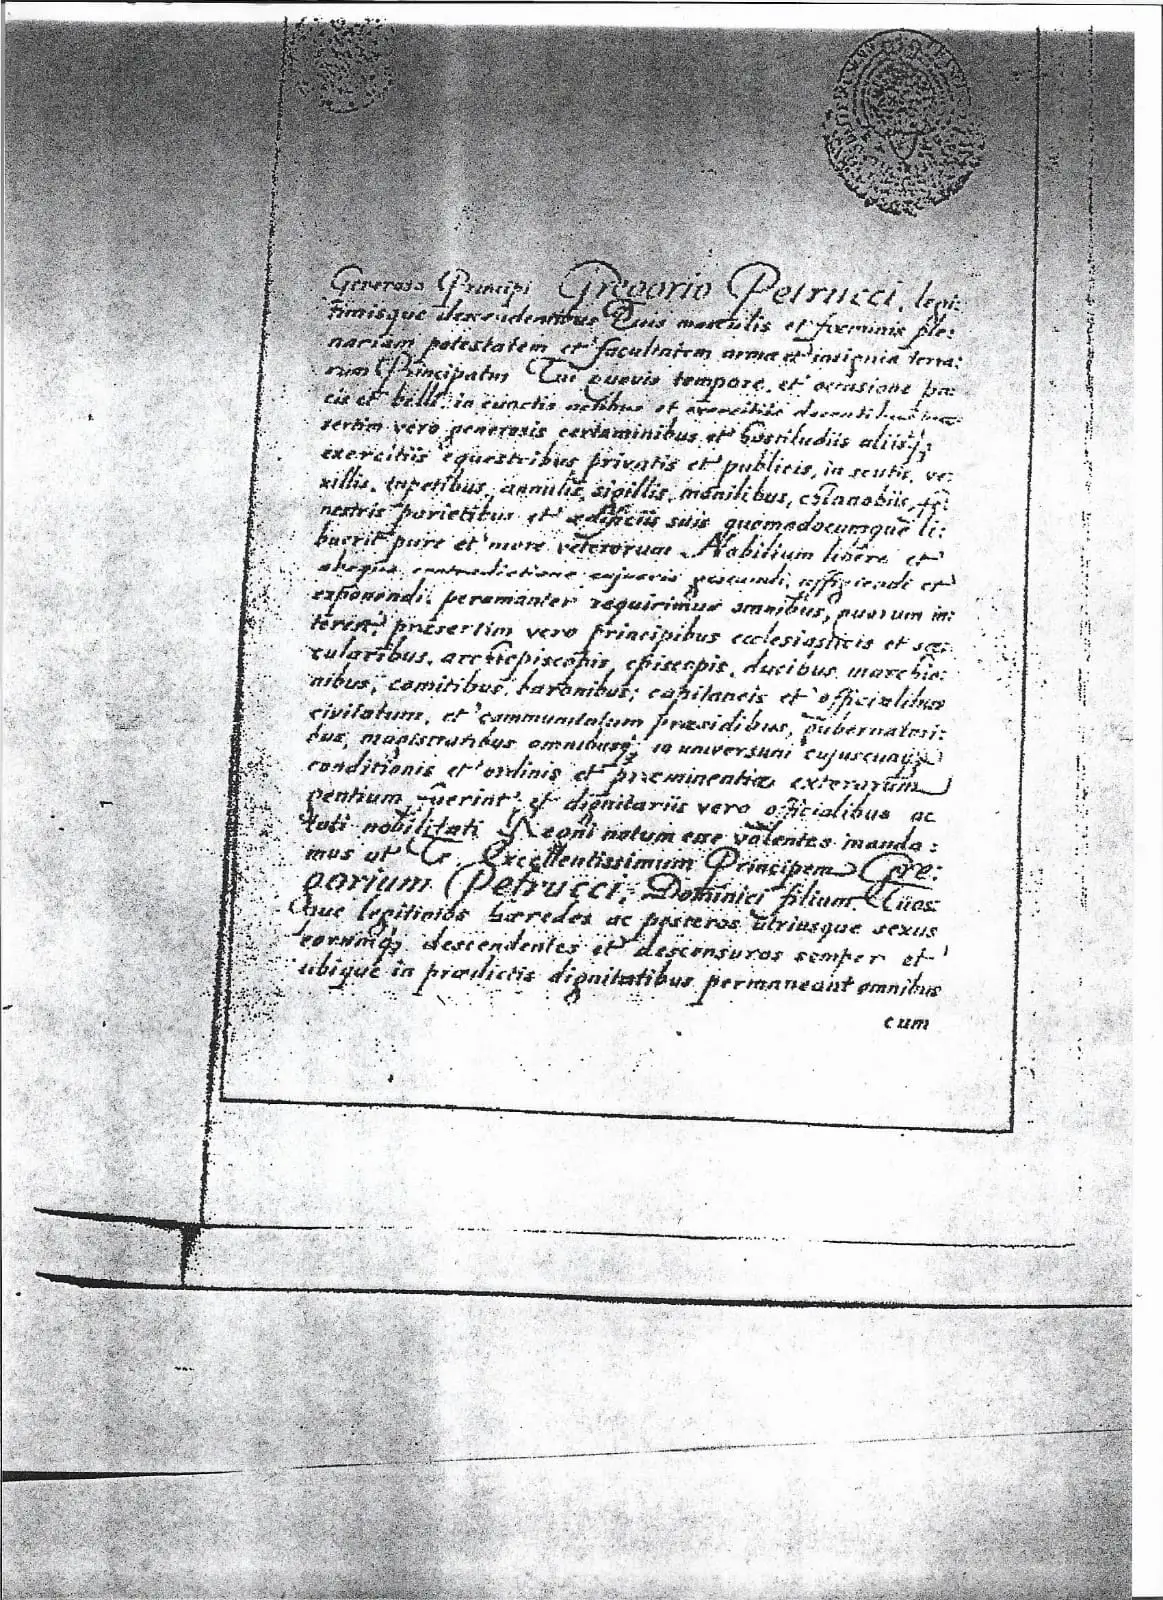 Generoso Principi Gregorio Petrucci, legi:
timisque descendentibus Tuis masculis et fœminis ple:
nariam potestatem et facultatem arma et insignia terra:
rum Principatus Tui quovis tempore, et occasione pa:
cis et belli in cunctis actibus et exercitiis decentibus
sertim vero generosis certaminibus et hostiludiis aliisq;
exercitiis equestribus privatis et publicis, in scutis, ve:
xillis, tapetibus, annulis, sigillis, monilibus, fe:
nestris parietibus et ædificiis suis quomodocumque li:
buerit pure et more veterorum Nobilium libere et
absque contradictione cujusvis gerendi, affigiendi et
exponendi, peramanter requirimus omnibus, quorum in:
terest, præsertim vero principibus ecclesiasticis et sæ:
cularibus, archiepiscopis, episcopis, ducibus, marchio:
nibus, comitibus, baronibus, capitaneis et officialibus
civitatum, et communitatum præsidibus, gubernatori:
bus, magistratibus omnibusq; in universum cujuscunq;
conditionis et ordinis et præminentiæ exterarum
gentium fuerint et dignitariis vero officialibus ac
toti nobilitati Regni notum esse volentes manda:
mus ut Te Excellentissimum Principem Gre:
gorium Petrucci, Dominici filium Tuos
que legitimos hæredes ac posteros utriusque sexus
eorumq; descendentes et descensuros semper et
ubique in prædictis dignitatibus permaneant omnibus
cum